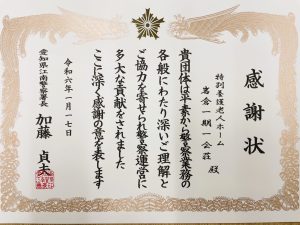 感謝状
特別養護老人ホーム
岩倉一期一会荘 殿
貴団体は平素から警察業務の
各般にわたり深いご理解と
ご協力を寄せられ警察運営に
多大な貢献をされました
ここに深く感謝の意を表します
令和六年一月一七日
愛知県江南警察署長
加藤貞夫